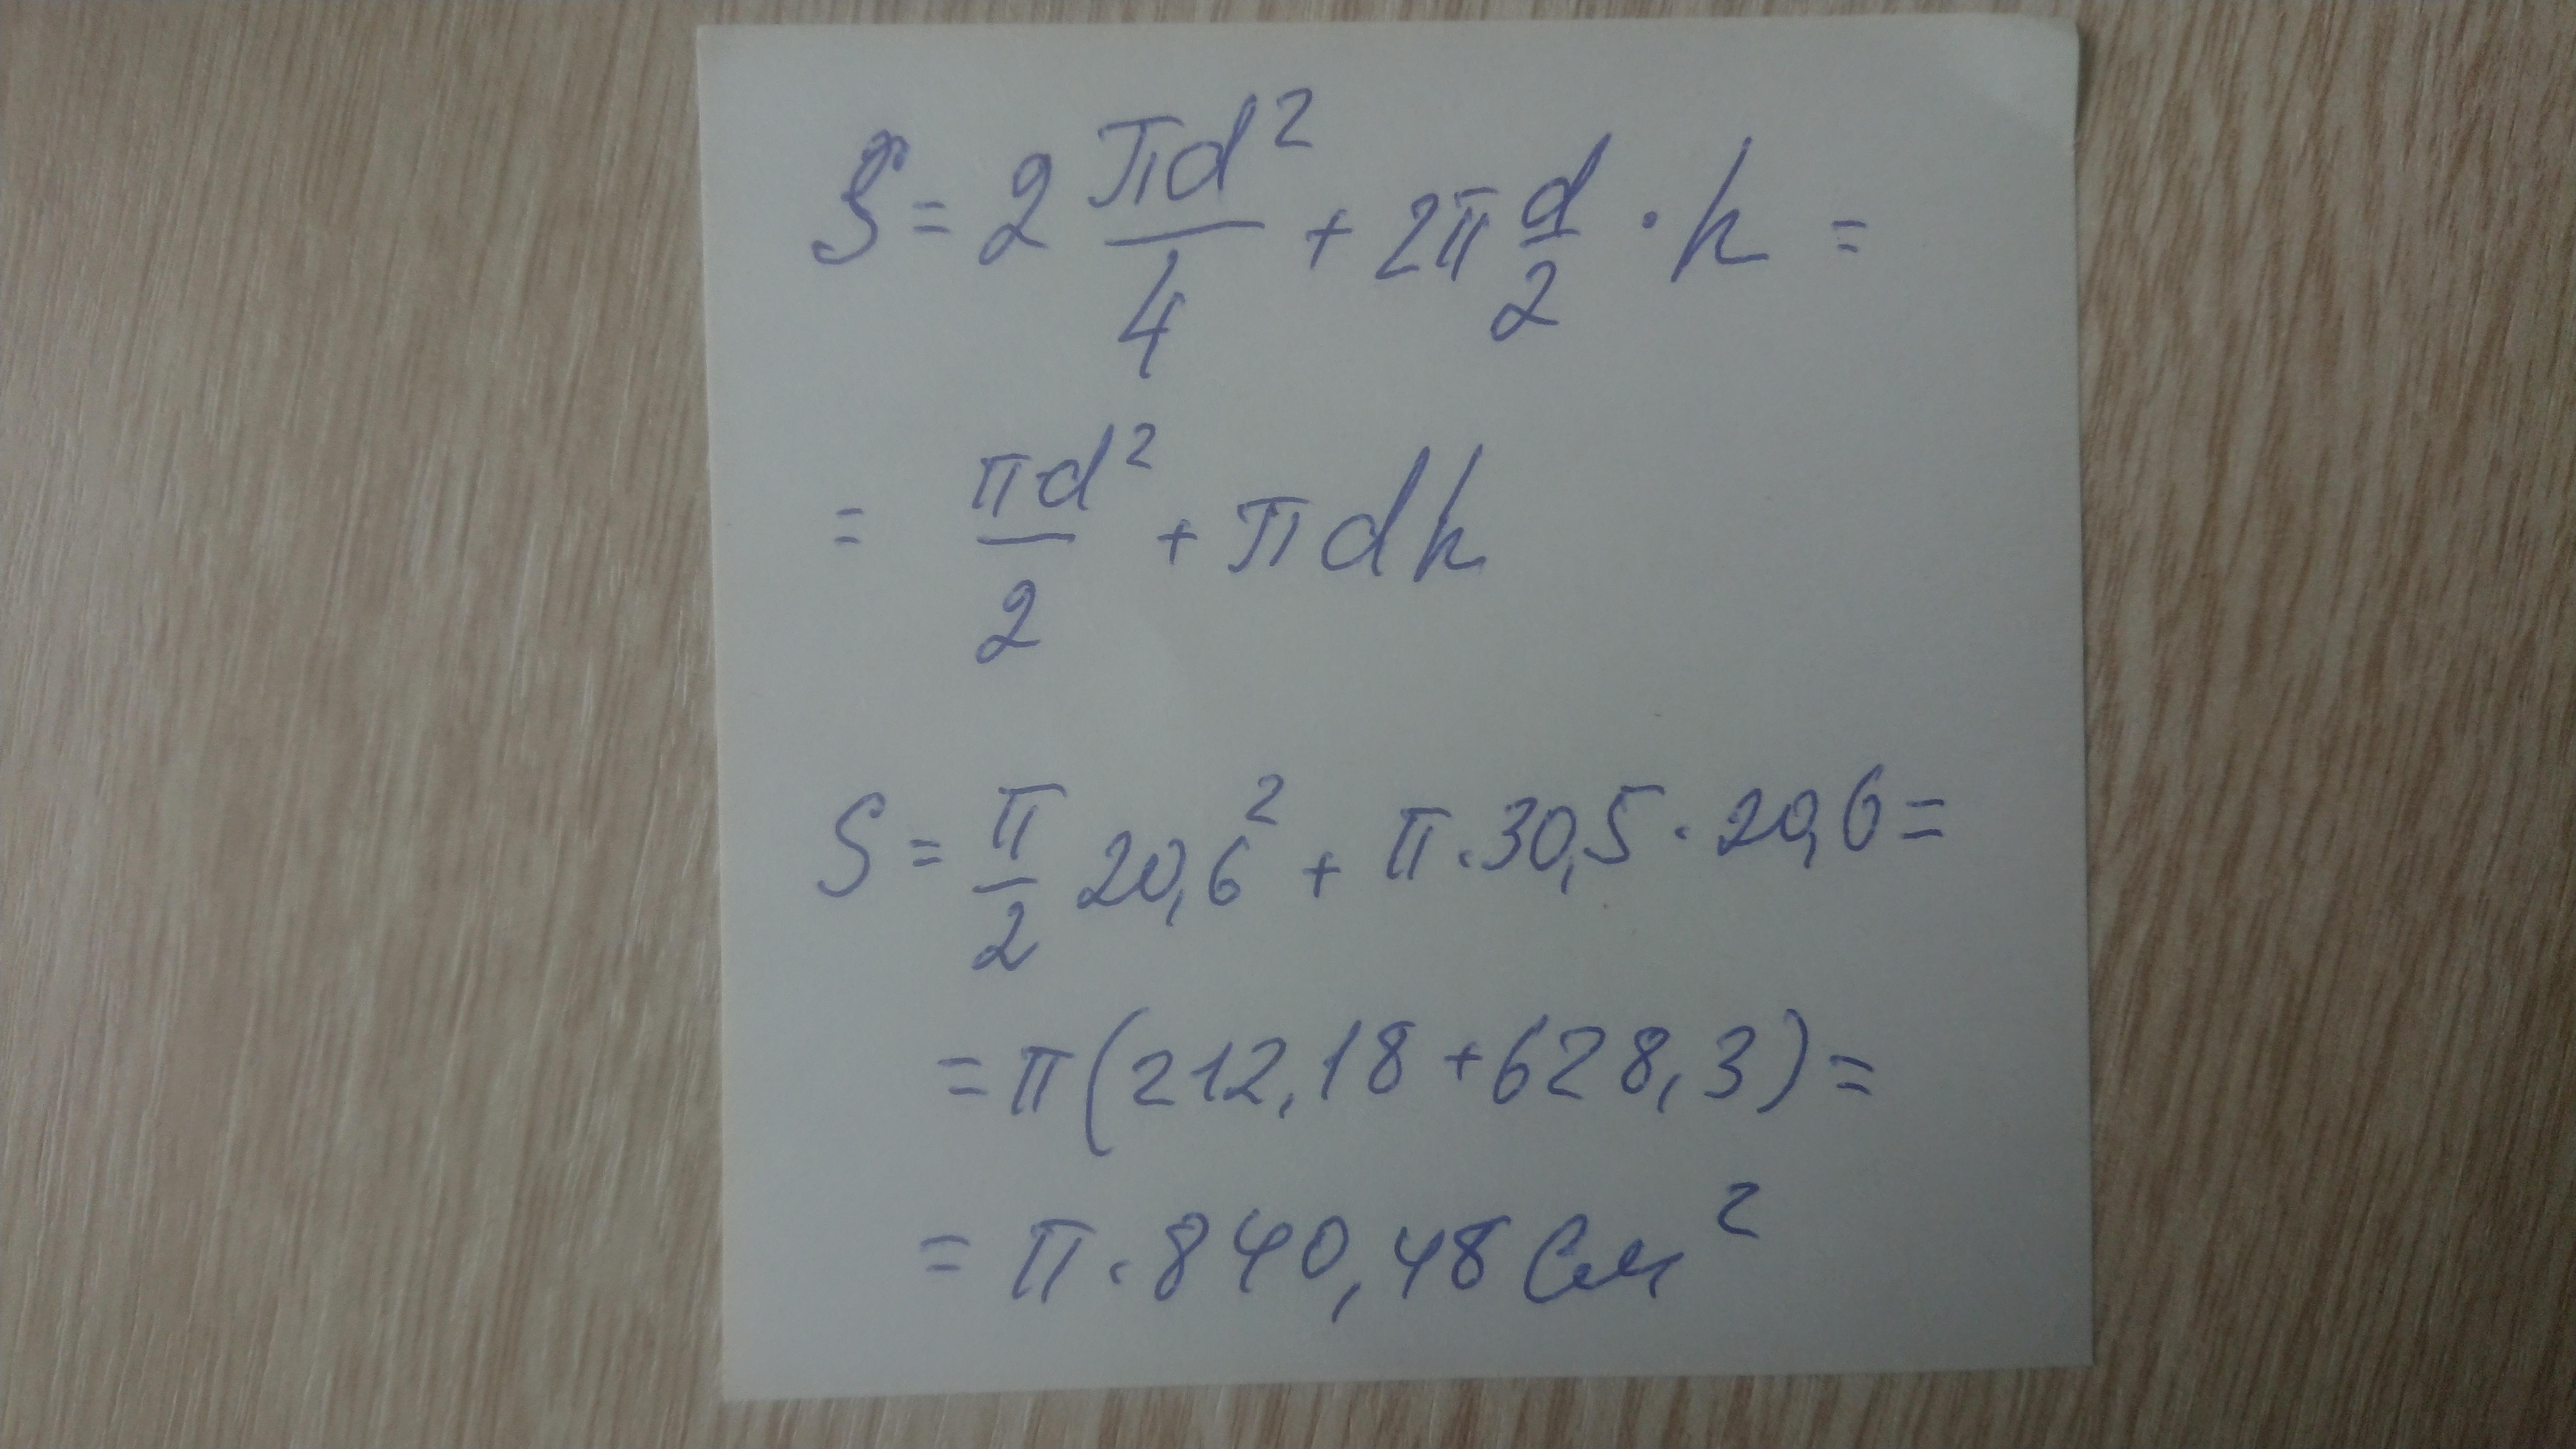 S = 2 πd²/4 + 2π d/2 · h =
= πd²/2 + πdh
S = π/2 20,6² + π · 30,5 · 20,6 =
= π(212,18 + 628,3) =
= π · 840,48 см²